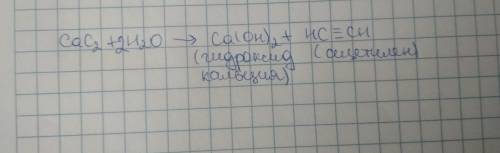 CaC₂ + 2H₂O → Ca(OH)₂ + HC≡CH
(гидроксид (ацетилен)
кальция)